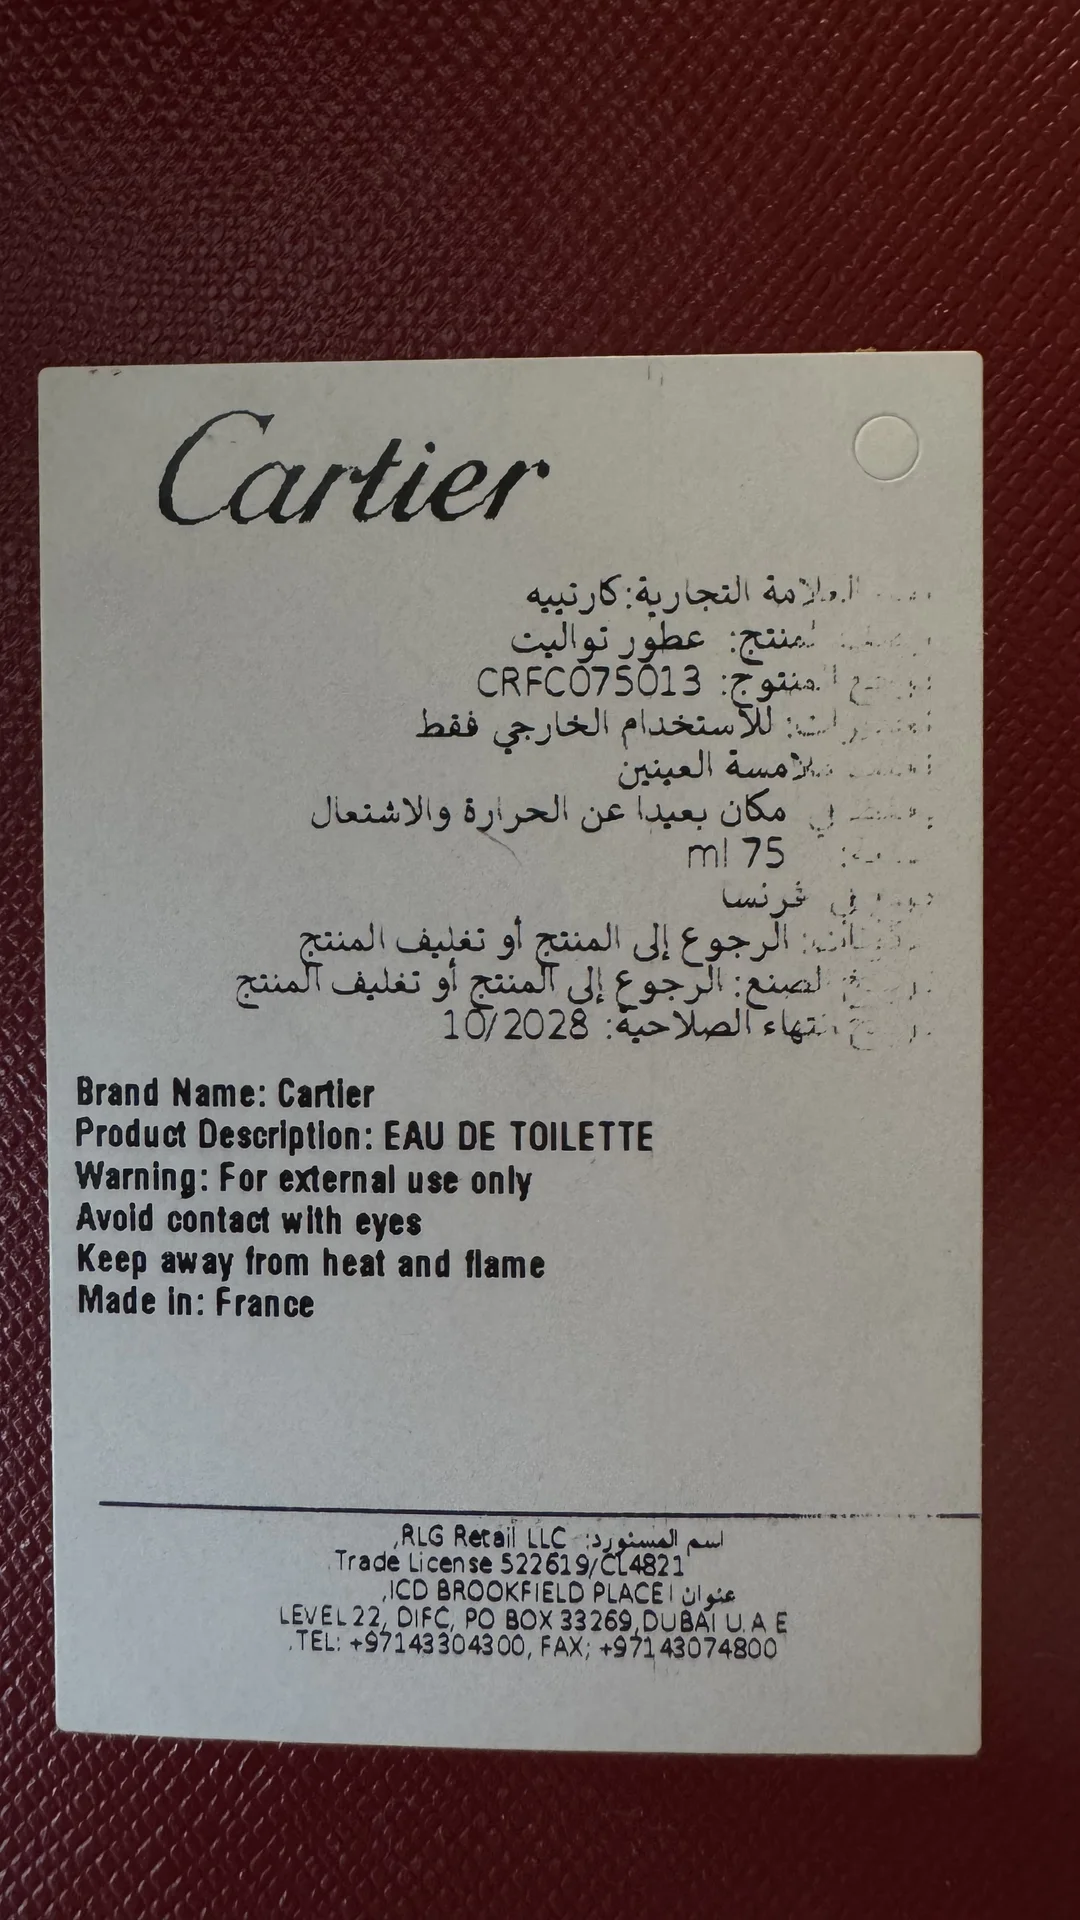 Cartier
العلامة التجارية:كارتييه
المنتج: عطور تواليت
المنتوج: CRFC075013
للأستخدام الخارجي فقط
ملامسة العينين
مكان بعيدا عن الحرارة والاشتعال
75 ml
في فرنسا
الرجوع إلى المنتج أو تغليف المنتج
الصنع: الرجوع إلى المنتج أو تغليف المنتج
انتهاء الصلاحية: 10/2028
Brand Name: Cartier
Product Description: EAU DE TOILETTE
Warning: For external use only
Avoid contact with eyes
Keep away from heat and flame
Made in: France
اسم المستورد: RLG Retail LLC,
Trade License 522619/CL4821
عنوان | ICD BROOKFIELD PLACE,
LEVEL 22, DIFC, PO BOX 33269,DUBAI U.A E
TEL: +97143304300, FAX: +97143074800.